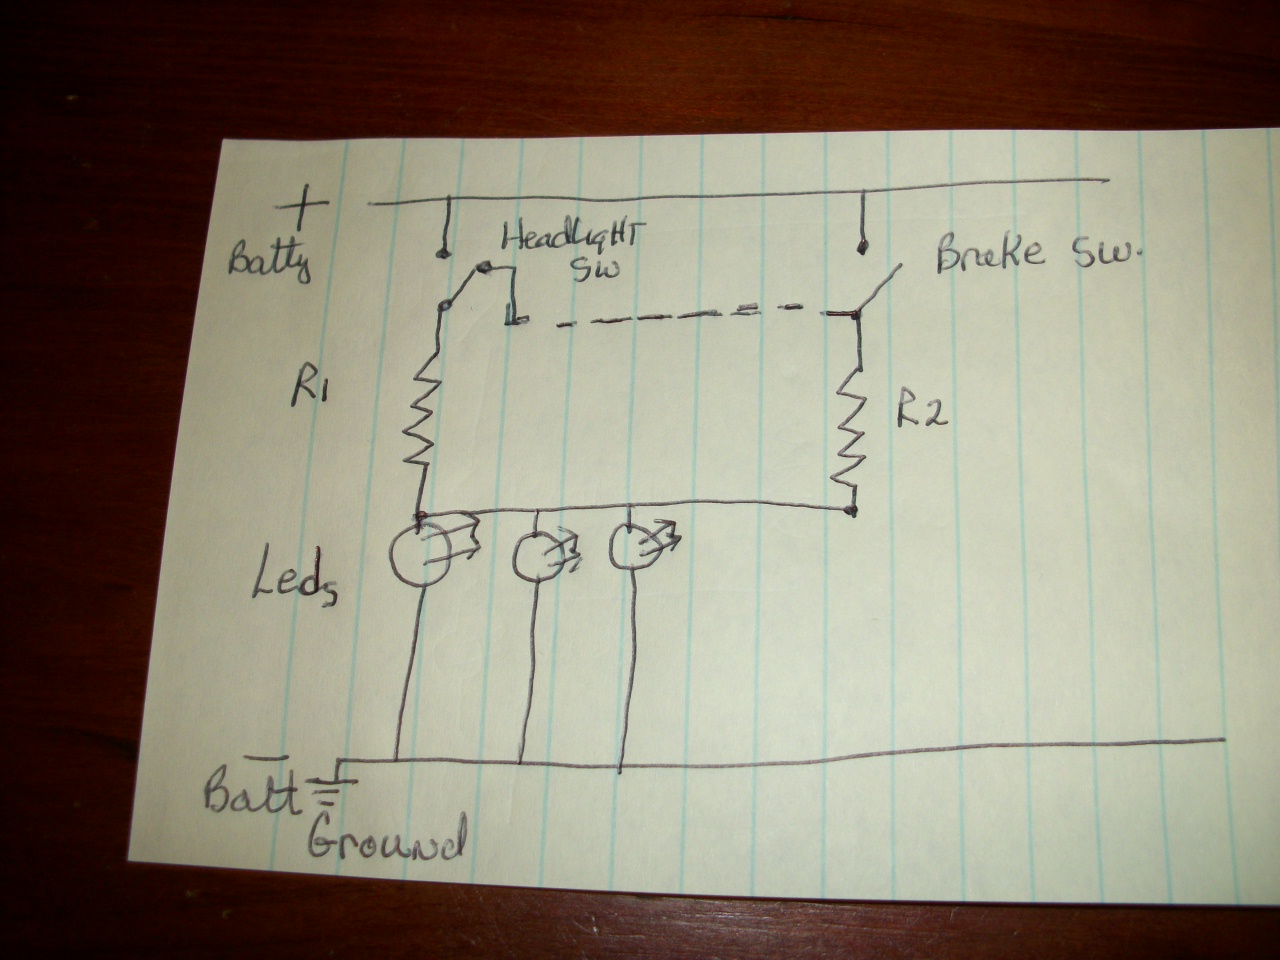 +
Batty
HeadLigHT
SW
Brake Sw.
R1
R2
Leds
—
Batt
Ground